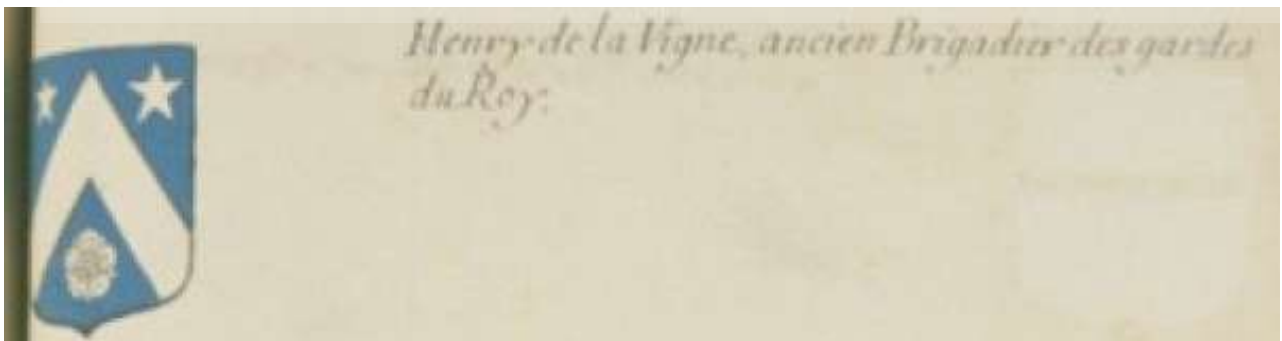 Henry de la Vigne, ancien Brigadier des gardes
du Roy.